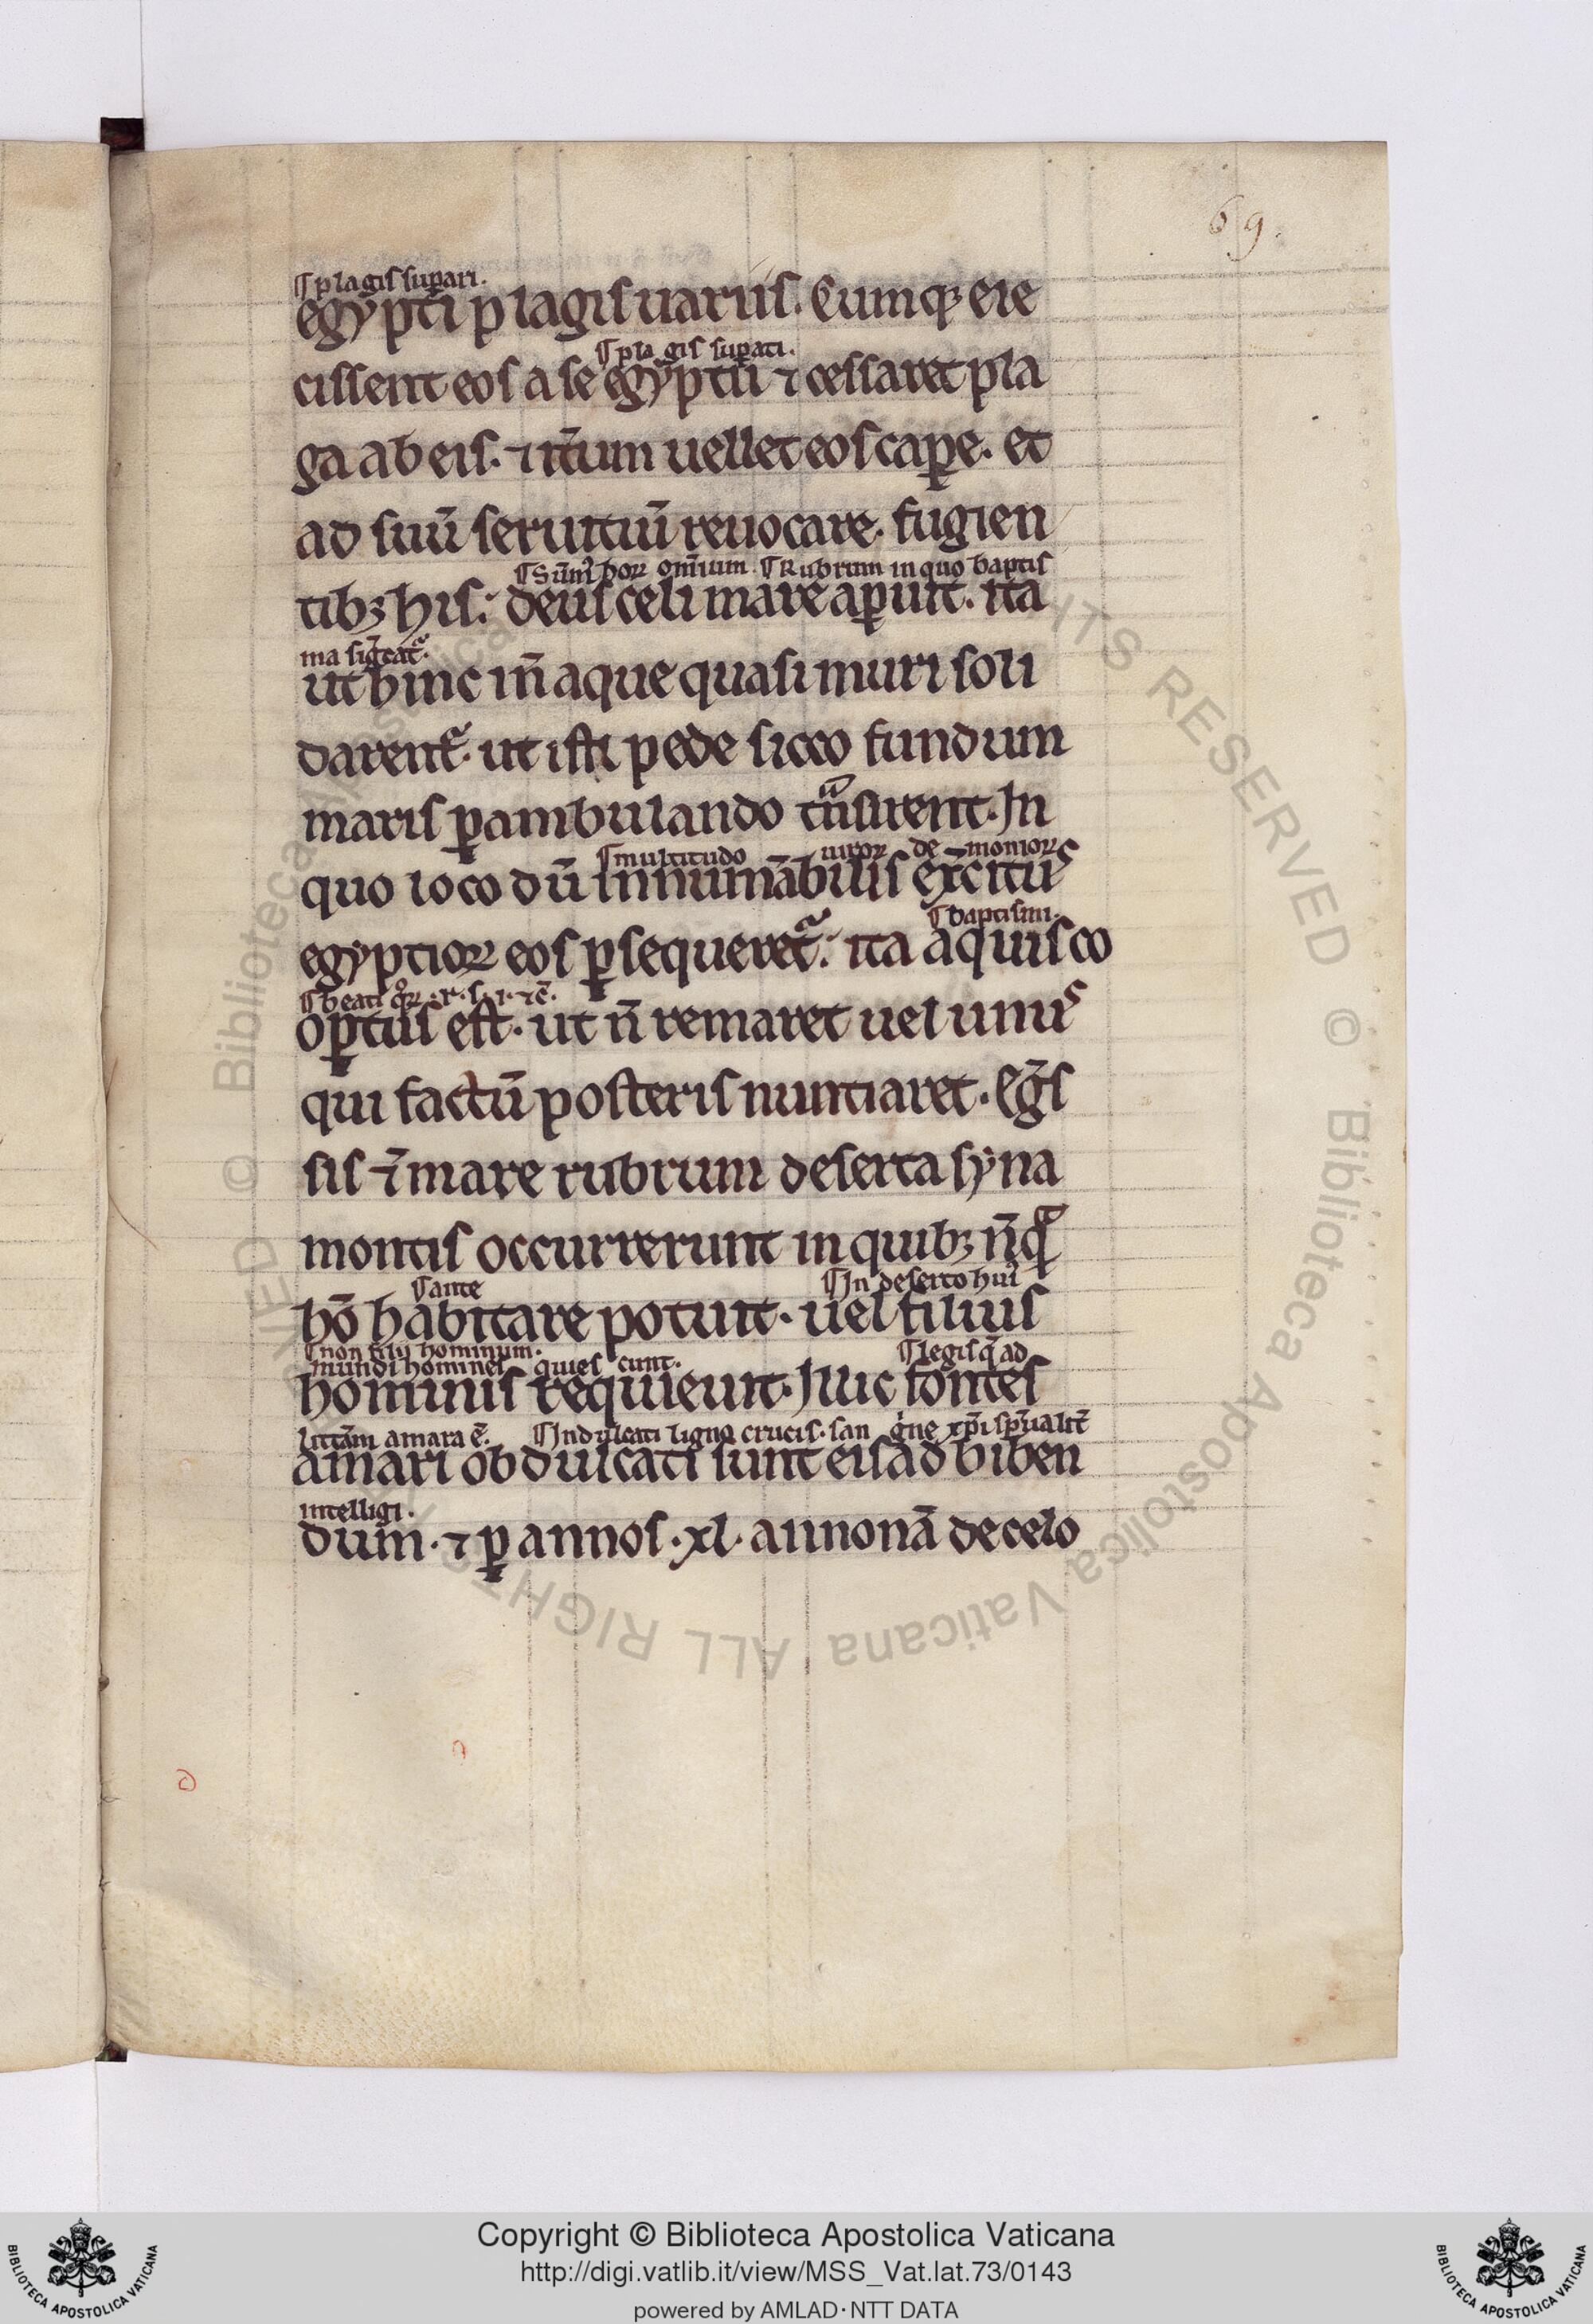 69.
¶ plagis suꝑari.
egyptī plagis uariis. Cumqꝫ eie
¶ pla gis suꝑati.
cissent eos a se egyptii ⁊ cessaret pla
ga ab eis. ⁊ itm̄um uellet eos caꝑe. et
ad suū seruitiū reuocare. fugien
¶ Sūm' hoꝝ om̄ium ¶ Rubrum in quo baptis
tibꝫ his. deus celi mare aꝑuit. ita
ma sigcat᷑.
ut hinc in̄ aque quasi muri soli
darent᷑. ut isti pede sicco fundum
maris ꝑambulando tn̄sirent. In
¶ multitudo uiꝛoꝝ de monioꝝ
quo loco dū innum̄abilis ex̄citus
¶ baptismi.
egyptioꝝ eos ꝑsequeret᷑. ita aquis co
¶ beati qoꝝ .r. s. i. ⁊ c̄.
oꝑtus est. ut n̄ remaret uel unus
qui factū posteris nuntiaret. Egs̄
sis ⁊̄ mare rubrum deserta syna
montis occurrerunt in quibꝫ n̄q̃
¶ ante ¶ In deserto hui'
hō habitare potuit. uel filius
¶ non filii hominum.
mundi homines quies cunt. ¶ legis q̄ ad
hominis requieuit. Illic fontes
littām amara ē. ¶ Indulcati ligno crucis. san gͥne xp̄i sp̄ualit̄
amari obdulcati sunt eis ad biben
intelligi.
dum. ⁊ ꝑ annos .xl. annonā de celo
© Biblioteca Apostolica Vaticana ALL RIGHTS RESERVED
Copyright © Biblioteca Apostolica Vaticana
http://digi.vatlib.it/view/MSS_Vat.lat.73/0143
powered by AMLAD·NTT DATA
BIBLIOTECA APOSTOLICA VATICANA
BIBLIOTECA APOSTOLICA VATICANA